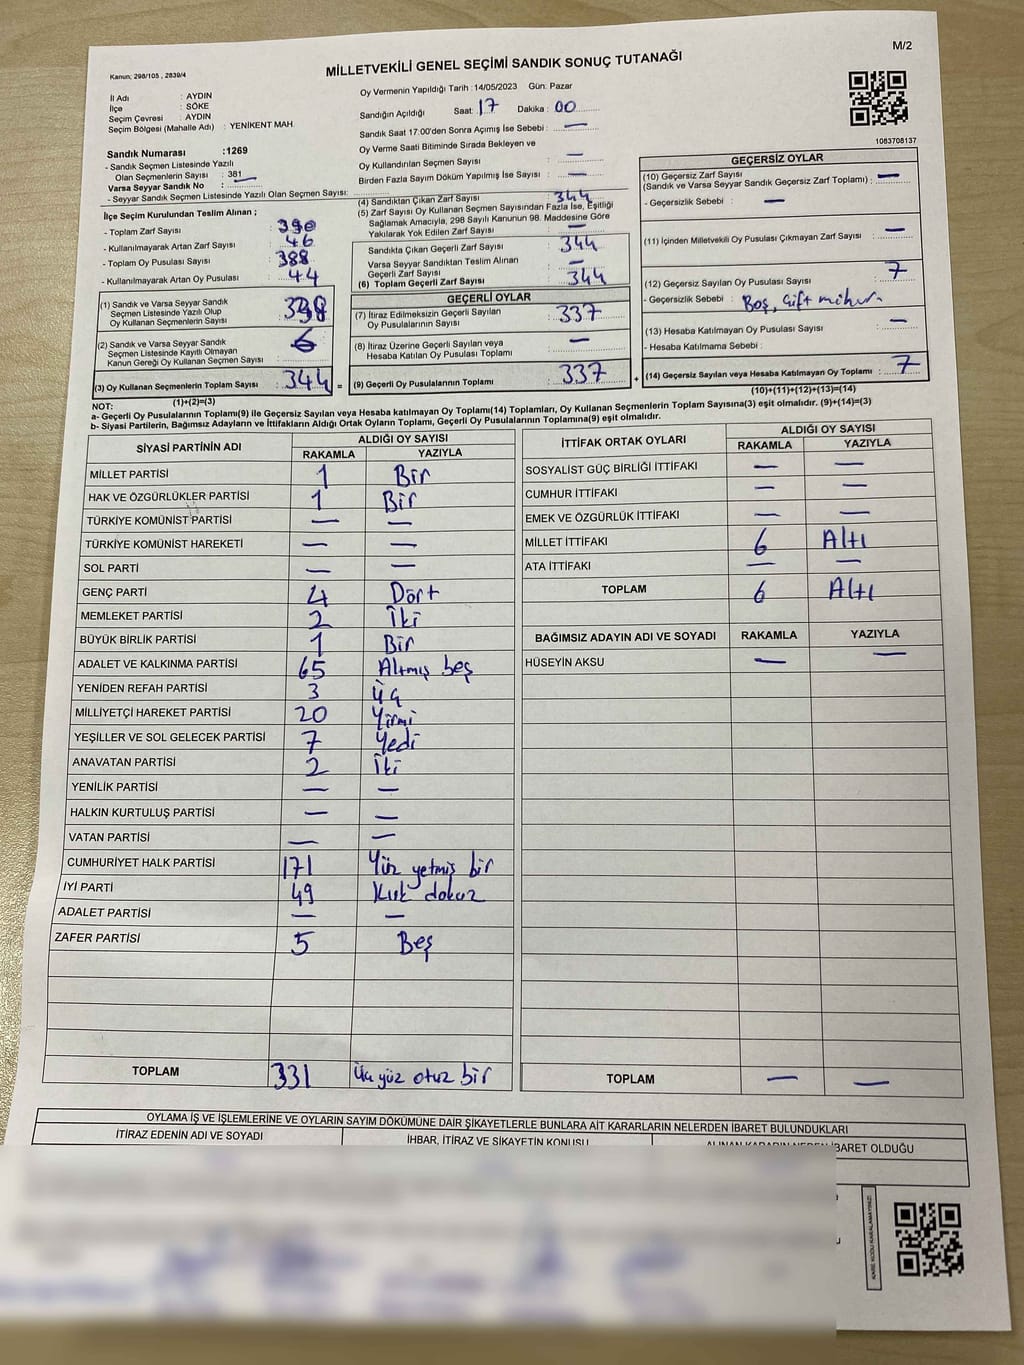 M/2
Kanun; 298/105 , 2839/4
MİLLETVEKİLİ GENEL SEÇİMİ SANDIK SONUÇ TUTANAĞI
İl Adı : AYDIN
İlçe : SÖKE
Seçim Çevresi : AYDIN
Seçim Bölgesi (Mahalle Adı) : YENİKENT MAH.
Sandık Numarası :1269
- Sandık Seçmen Listesinde Yazılı
Olan Seçmenlerin Sayısı : 381
Varsa Seyyar Sandık No : —
- Seyyar Sandık Seçmen Listesinde Yazılı Olan Seçmen Sayısı:
Oy Vermenin Yapıldığı Tarih :14/05/2023 Gün: Pazar
Sandığın Açıldığı Saat: 17 Dakika : 00
Sandık Saat 17:00'den Sonra Açımış İse Sebebi : —
Oy Verme Saati Bitiminde Sırada Bekleyen ve
Oy Kullandırılan Seçmen Sayısı : —
Birden Fazla Sayım Döküm Yapılmış İse Sayısı : —
1083708137
İlçe Seçim Kurulundan Teslim Alınan ;
- Toplam Zarf Sayısı : 390
- Kullanılmayarak Artan Zarf Sayısı : 46
- Toplam Oy Pusulası Sayısı : 388
- Kullanılmayarak Artan Oy Pusulası : 44
(1) Sandık ve Varsa Seyyar Sandık
Seçmen Listesinde Yazılı Olup
Oy Kullanan Seçmenlerin Sayısı : 338
(2) Sandık ve Varsa Seyyar Sandık
Seçmen Listesinde Kayıtlı Olmayan
Kanun Gereği Oy Kullanan Seçmen Sayısı : 6
(3) Oy Kullanan Seçmenlerin Toplam Sayısı : 344 =
(1)+(2)=(3)
(4) Sandıktan Çıkan Zarf Sayısı : 344
(5) Zarf Sayısı Oy Kullanan Seçmen Sayısından Fazla İse, Eşitliği
Sağlamak Amacıyla, 298 Sayılı Kanunun 98. Maddesine Göre
Yakılarak Yok Edilen Zarf Sayısı : —
Sandıkta Çıkan Geçerli Zarf Sayısı : 344
Varsa Seyyar Sandıktan Teslim Alınan
Geçerli Zarf Sayısı : —
(6) Toplam Geçerli Zarf Sayısı : 344
GEÇERLİ OYLAR
(7) İtiraz Edilmeksizin Geçerli Sayılan
Oy Pusulalarının Sayısı : 337
(8) İtiraz Üzerine Geçerli Sayılan veya
Hesaba Katılan Oy Pusulası Toplamı : —
(9) Geçerli Oy Pusulalarının Toplamı : 337 +
GEÇERSİZ OYLAR
(10) Geçersiz Zarf Sayısı : —
(Sandık ve Varsa Seyyar Sandık Geçersiz Zarf Toplamı)
- Geçersizlik Sebebi : —
(11) İçinden Milletvekili Oy Pusulası Çıkmayan Zarf Sayısı : —
(12) Geçersiz Sayılan Oy Pusulası Sayısı : 7
- Geçersizlik Sebebi : Boş, Çift mühür.
(13) Hesaba Katılmayan Oy Pusulası Sayısı : —
- Hesaba Katılmama Sebebi :
(14) Geçersiz Sayılan veya Hesaba Katılmayan Oy Toplamı : 7
(10)+(11)+(12)+(13)=(14)
NOT:
a- Geçerli Oy Pusulalarının Toplamı(9) ile Geçersiz Sayılan veya Hesaba katılmayan Oy Toplamı(14) Toplamları, Oy Kullanan Seçmenlerin Toplam Sayısına(3) eşit olmalıdır. (9)+(14)=(3)
b- Siyasi Partilerin, Bağımsız Adayların ve İttifakların Aldığı Ortak Oyların Toplamı, Geçerli Oy Pusulalarının Toplamına(9) eşit olmalıdır.
SİYASİ PARTİNİN ADI ALDIĞI OY SAYISI
RAKAMLA YAZIYLA
MİLLET PARTİSİ 1 Bir
HAK VE ÖZGÜRLÜKLER PARTİSİ 1 Bir
TÜRKİYE KOMÜNİST PARTİSİ — —
TÜRKİYE KOMÜNİST HAREKETİ — —
SOL PARTİ — —
GENÇ PARTİ 4 Dört
MEMLEKET PARTİSİ 2 İki
BÜYÜK BİRLİK PARTİSİ 1 Bir
ADALET VE KALKINMA PARTİSİ 65 Altmış beş
YENİDEN REFAH PARTİSİ 3 Üç
MİLLİYETÇİ HAREKET PARTİSİ 20 Yirmi
YEŞİLLER VE SOL GELECEK PARTİSİ 7 Yedi
ANAVATAN PARTİSİ 2 İki
YENİLİK PARTİSİ — —
HALKIN KURTULUŞ PARTİSİ — —
VATAN PARTİSİ — —
CUMHURİYET HALK PARTİSİ 171 Yüz yetmiş bir
İYİ PARTİ 49 Kırk dokuz
ADALET PARTİSİ — —
ZAFER PARTİSİ 5 Beş
TOPLAM 331 Üç yüz otuz bir
İTTİFAK ORTAK OYLARI ALDIĞI OY SAYISI
RAKAMLA YAZIYLA
SOSYALİST GÜÇ BİRLİĞİ İTTİFAKI — —
CUMHUR İTTİFAKI — —
EMEK VE ÖZGÜRLÜK İTTİFAKI — —
MİLLET İTTİFAKI 6 Altı
ATA İTTİFAKI — —
TOPLAM 6 Altı
BAĞIMSIZ ADAYIN ADI VE SOYADI RAKAMLA YAZIYLA
HÜSEYİN AKSU — —
TOPLAM — —
OYLAMA İŞ VE İŞLEMLERİNE VE OYLARIN SAYIM DÖKÜMÜNE DAİR ŞİKAYETLERLE BUNLARA AİT KARARLARIN NELERDEN İBARET BULUNDUKLARI
İTİRAZ EDENİN ADI VE SOYADI İHBAR, İTİRAZ VE ŞİKAYETİN KONUSU ALINAN KARARIN NEDEN İBARET OLDUĞU
KARE KODU KARALAMAYINIZ!